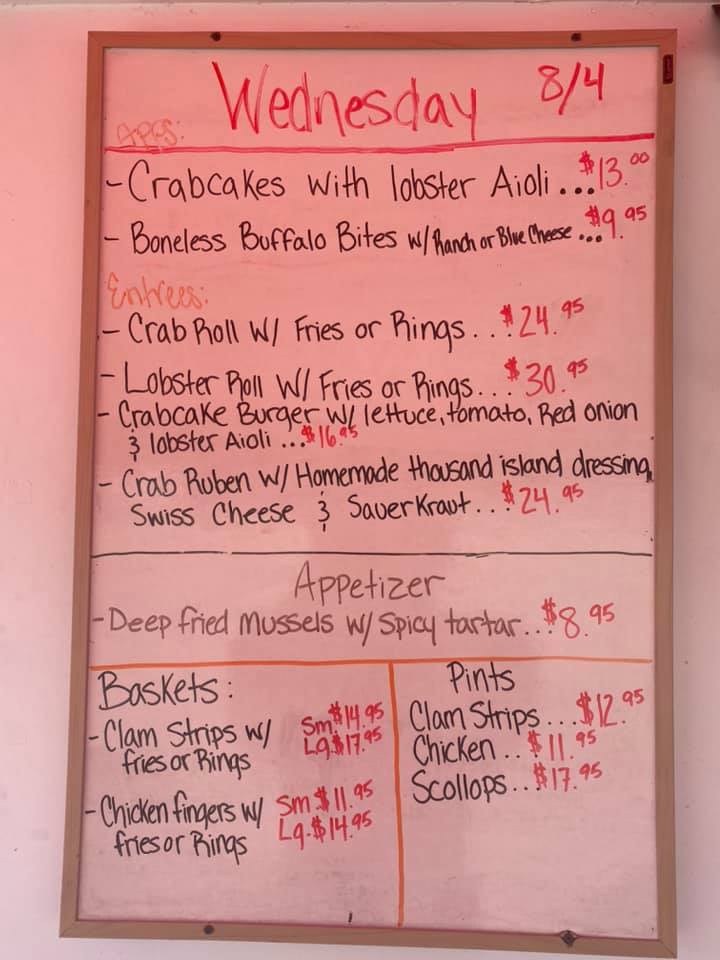 Wednesday 8/4
Apps:
- Crabcakes with lobster Aioli ... $13.00
- Boneless Buffalo Bites w/ Ranch or Blue Cheese ... $9.95
Entrees:
- Crab Roll w/ Fries or Rings... $24.95
- Lobster Roll w/ Fries or Rings... $30.95
- Crabcake Burger w/ lettuce, tomato, Red onion
& lobster Aioli ... $16.95
- Crab Ruben w/ Homemade thousand island dressing,
Swiss Cheese & SauerKraut... $24.95
Appetizer
- Deep fried mussels w/ Spicy tartar... $8.95
Baskets:
- Clam Strips w/ Sm. $14.95
fries or Rings Lg. $17.95
- Chicken fingers w/ Sm $11.95
fries or Rings Lg. $14.95
Pints
Clam Strips... $12.95
Chicken... $11.95
Scollops... $17.95